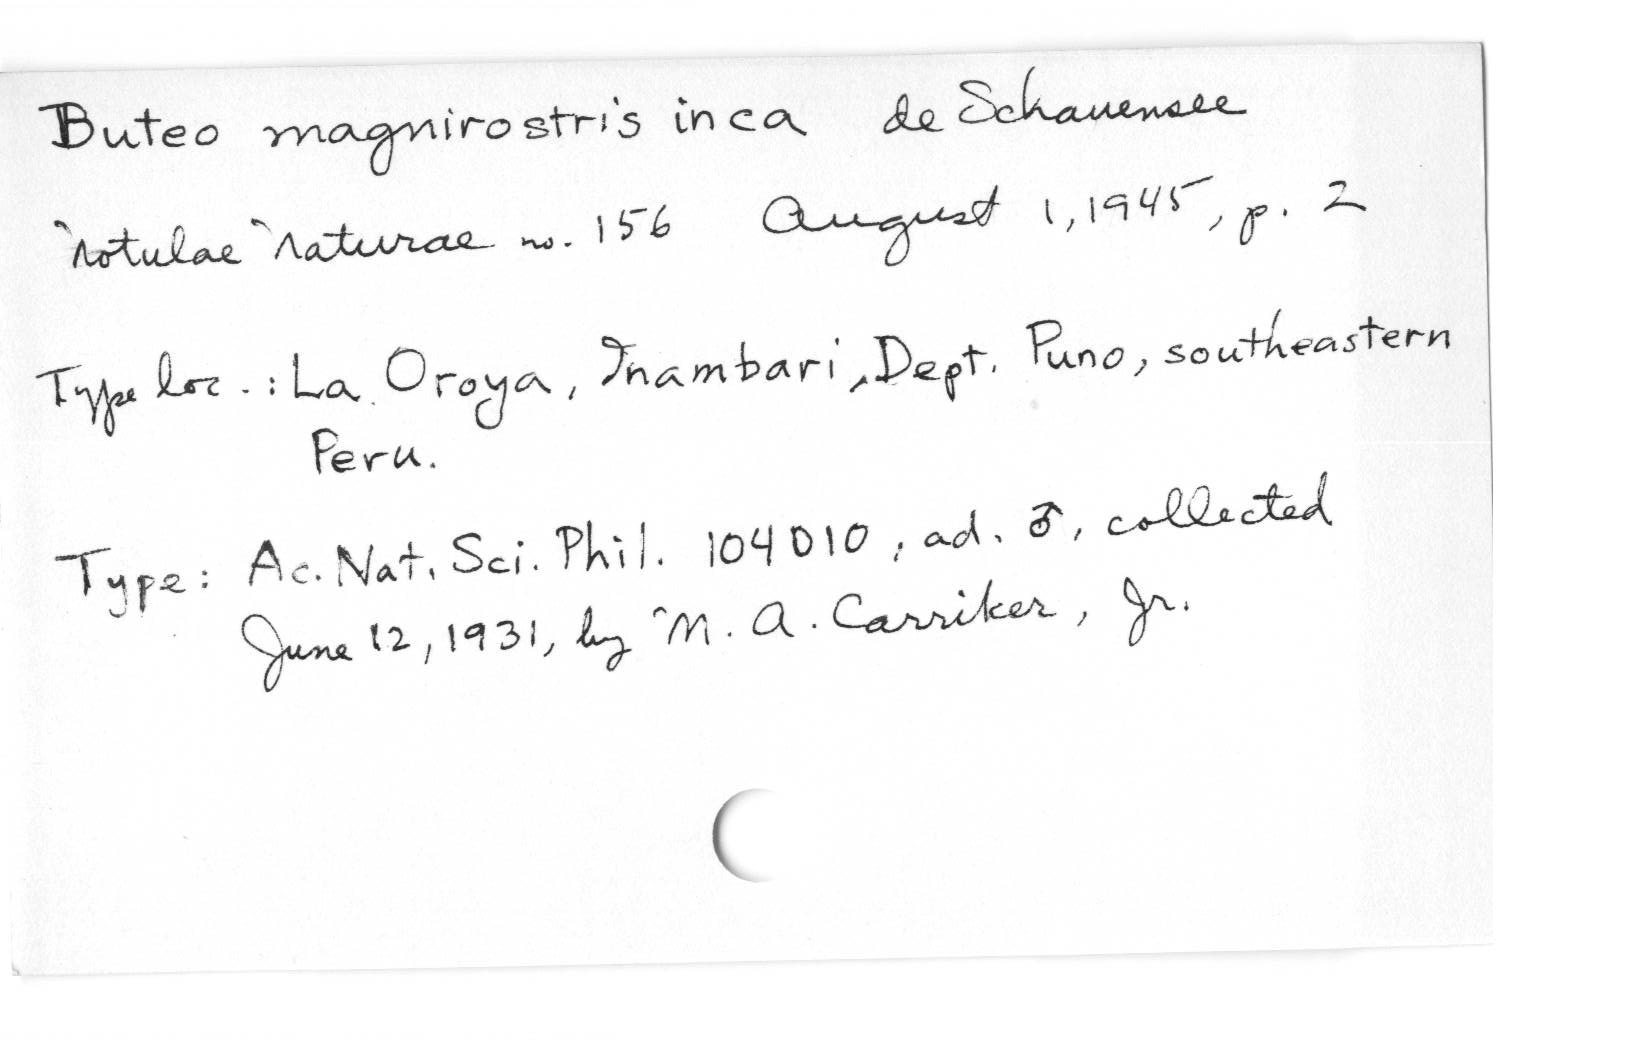 Buteo magnirostris inca de Schauensee
Notulae Naturae no. 156 August 1, 1945, p. 2
Type loc.: La Oroya, Inambari, Dept. Puno, southeastern
Peru.
Type: Ac. Nat. Sci. Phil. 104010, ad. ♂, collected
June 12, 1931, by M. A. Carriker, Jr.